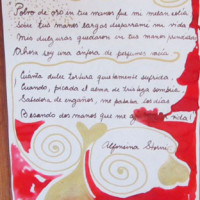 Polvo de oro en tus manos fue mi melancolía
Sobre tus manos largas desparramé mi vida
Mis dulzuras quedaron en tus manos prendidas
Ahora soy una anfora de perfumes vacía
Cuanta dulce tortura quietamente sufrida,
Cuando, picada el alma de tristeza sombría,
Sabedora de engaños, me pasaba los días
Besando dos manos que me vida!
Alfonsina Storni